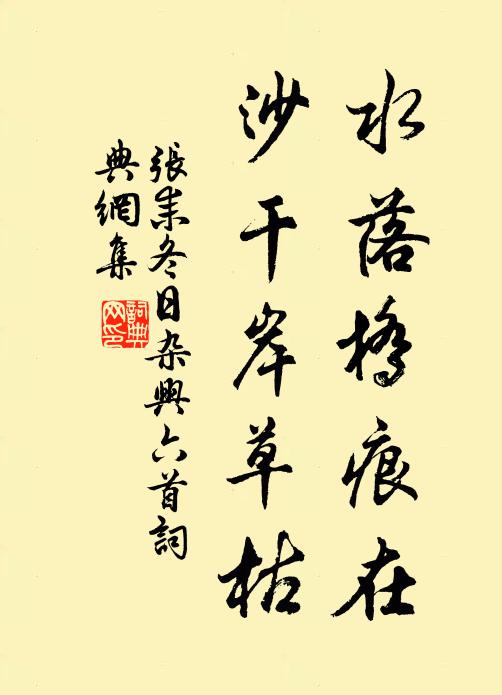 水落橋痕在
沙干岸草枯
張耒冬日杂興六首詞
典網集
詞典
网印